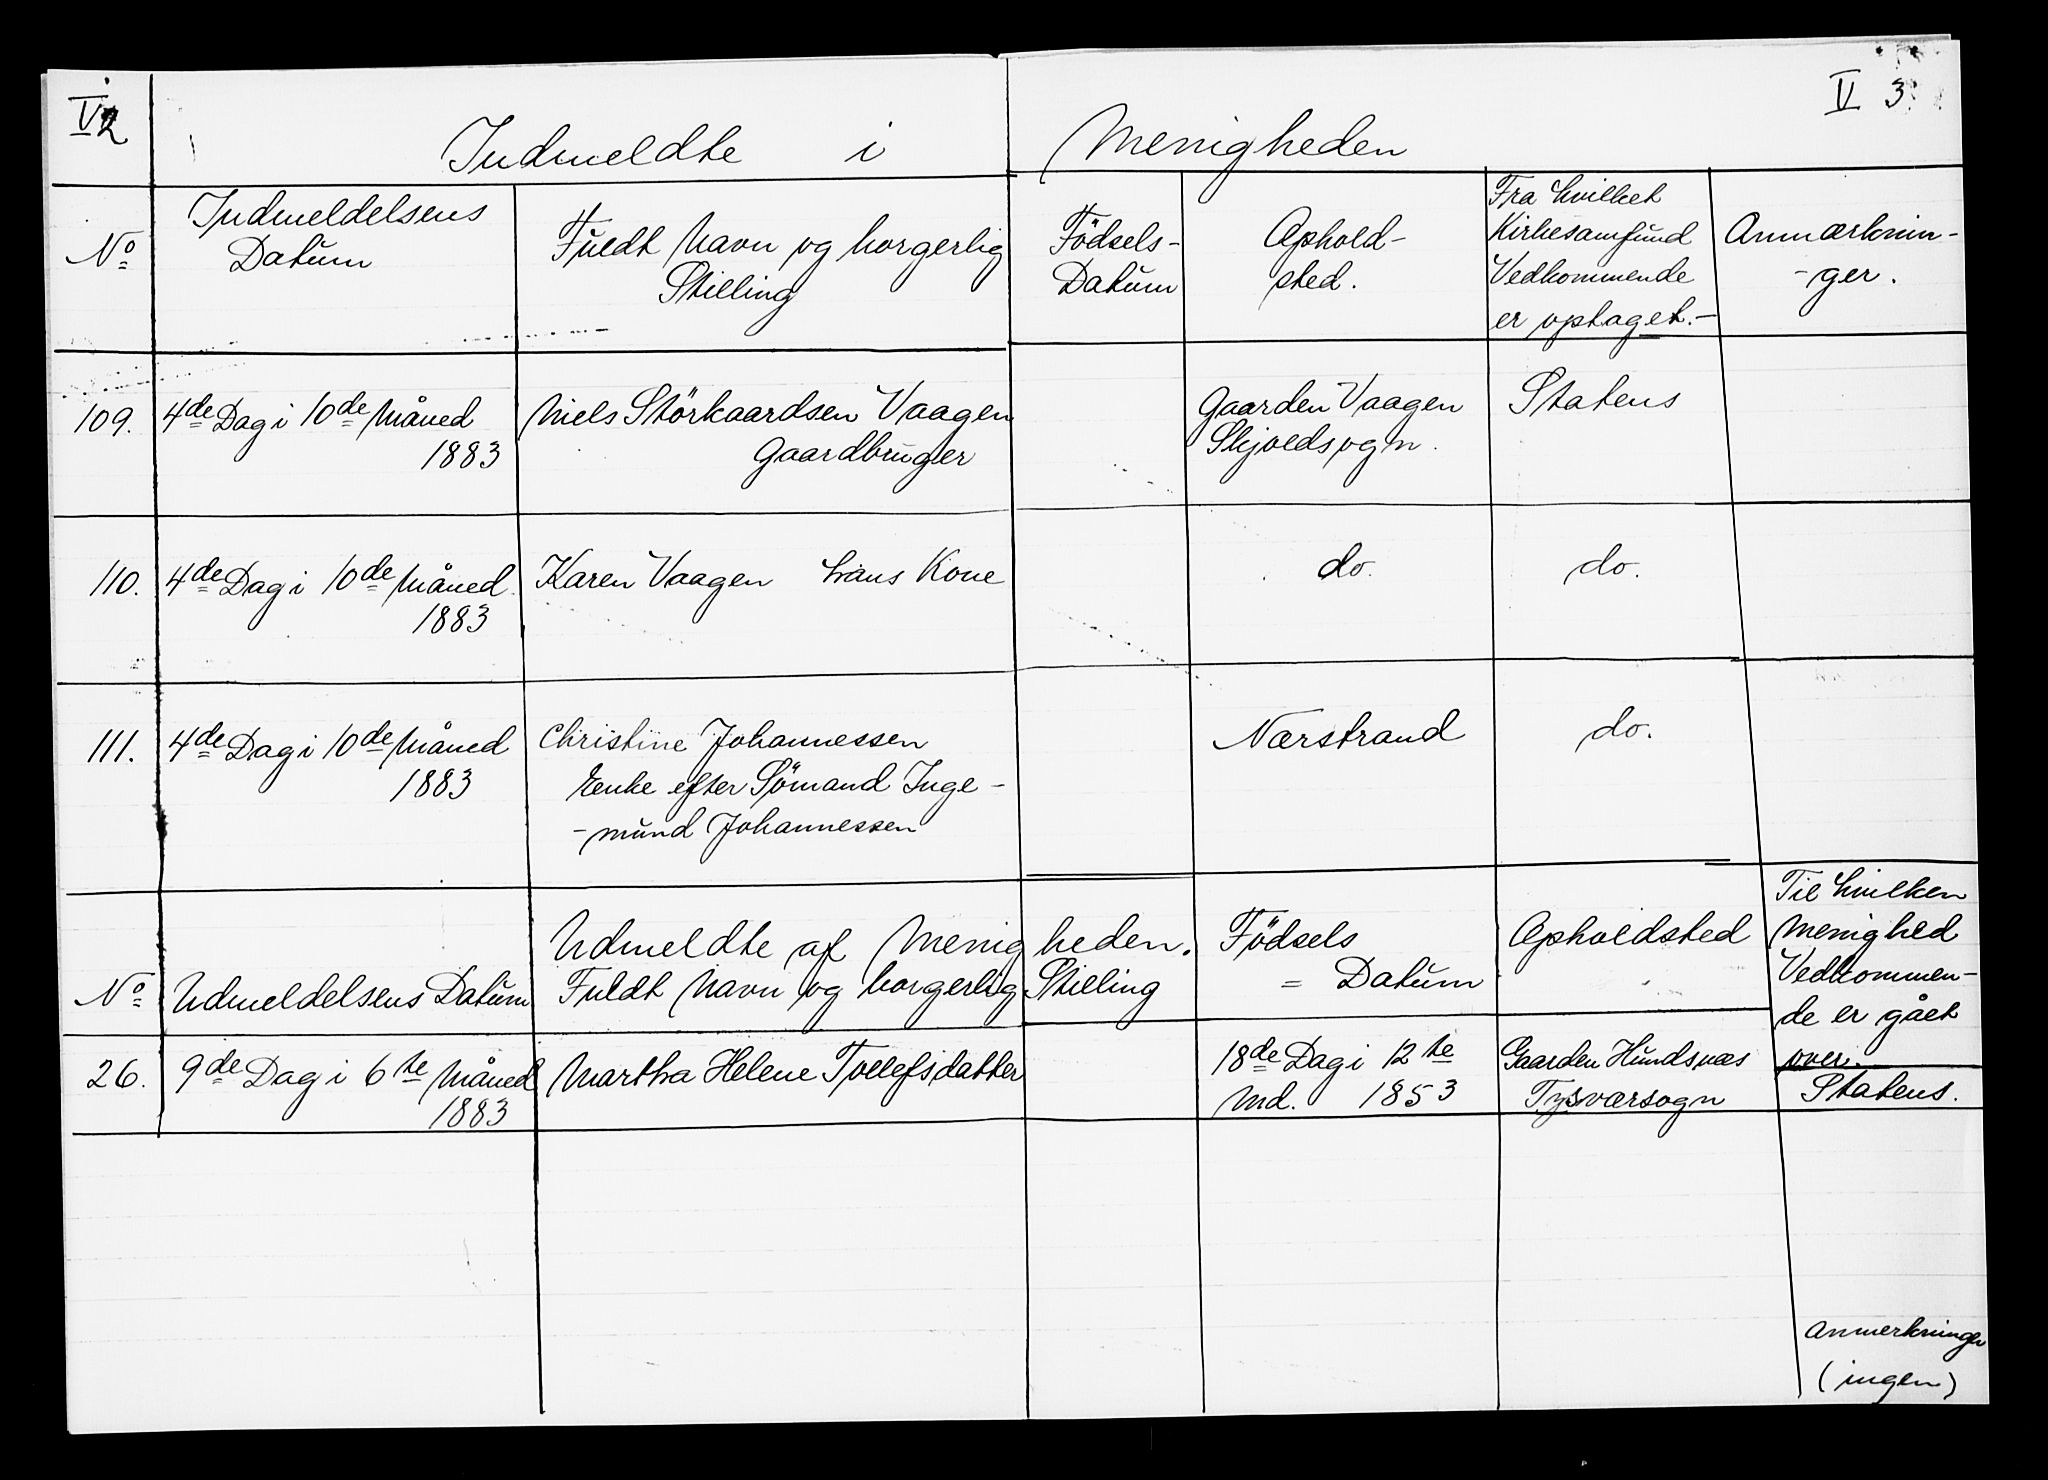 V 2
V 3
Indmeldte i Menigheden
No
Indmeldelsens
Datum
Fuldt Navn og borgerlig
Stilling
Födsels-
Datum
Ophold-
sted.
Fra hvilket
Kirkesamfund
Vedkommende
er optaget.-
Anmærknin-
-ger.
109.
4de Dag i 10de Måned
1883
Niels Störkaardsen Vaagen
Gaardbruger
Gaarden Vaagen
Skjoldsogn.
Statens
110.
4de Dag i 10de Måned
1883
Karen Vaagen hans Kone
do.
do.
111.
4de Dag i 10de Måned
1883
Christine Johannessen
Enke efter Sömand Inge-
-mund Johannessen
Nærstrand
do.
Udmeldte af Menigheden.
No
Udmeldelsens Datum
Fuldt Navn og borgerlig Stilling
Födsels
= Datum
Opholdsted
Til hvilken
Menighed
Vedkommen-
de er gået
over.
26.
9de Dag i 6te Måned
1883
Martha Helene Tollefsdatter
18de Dag i 12te
Md. 1853
Gaarden Hundsnæs
Tysværsogn
Statens.
Anmerkninger
(ingen)